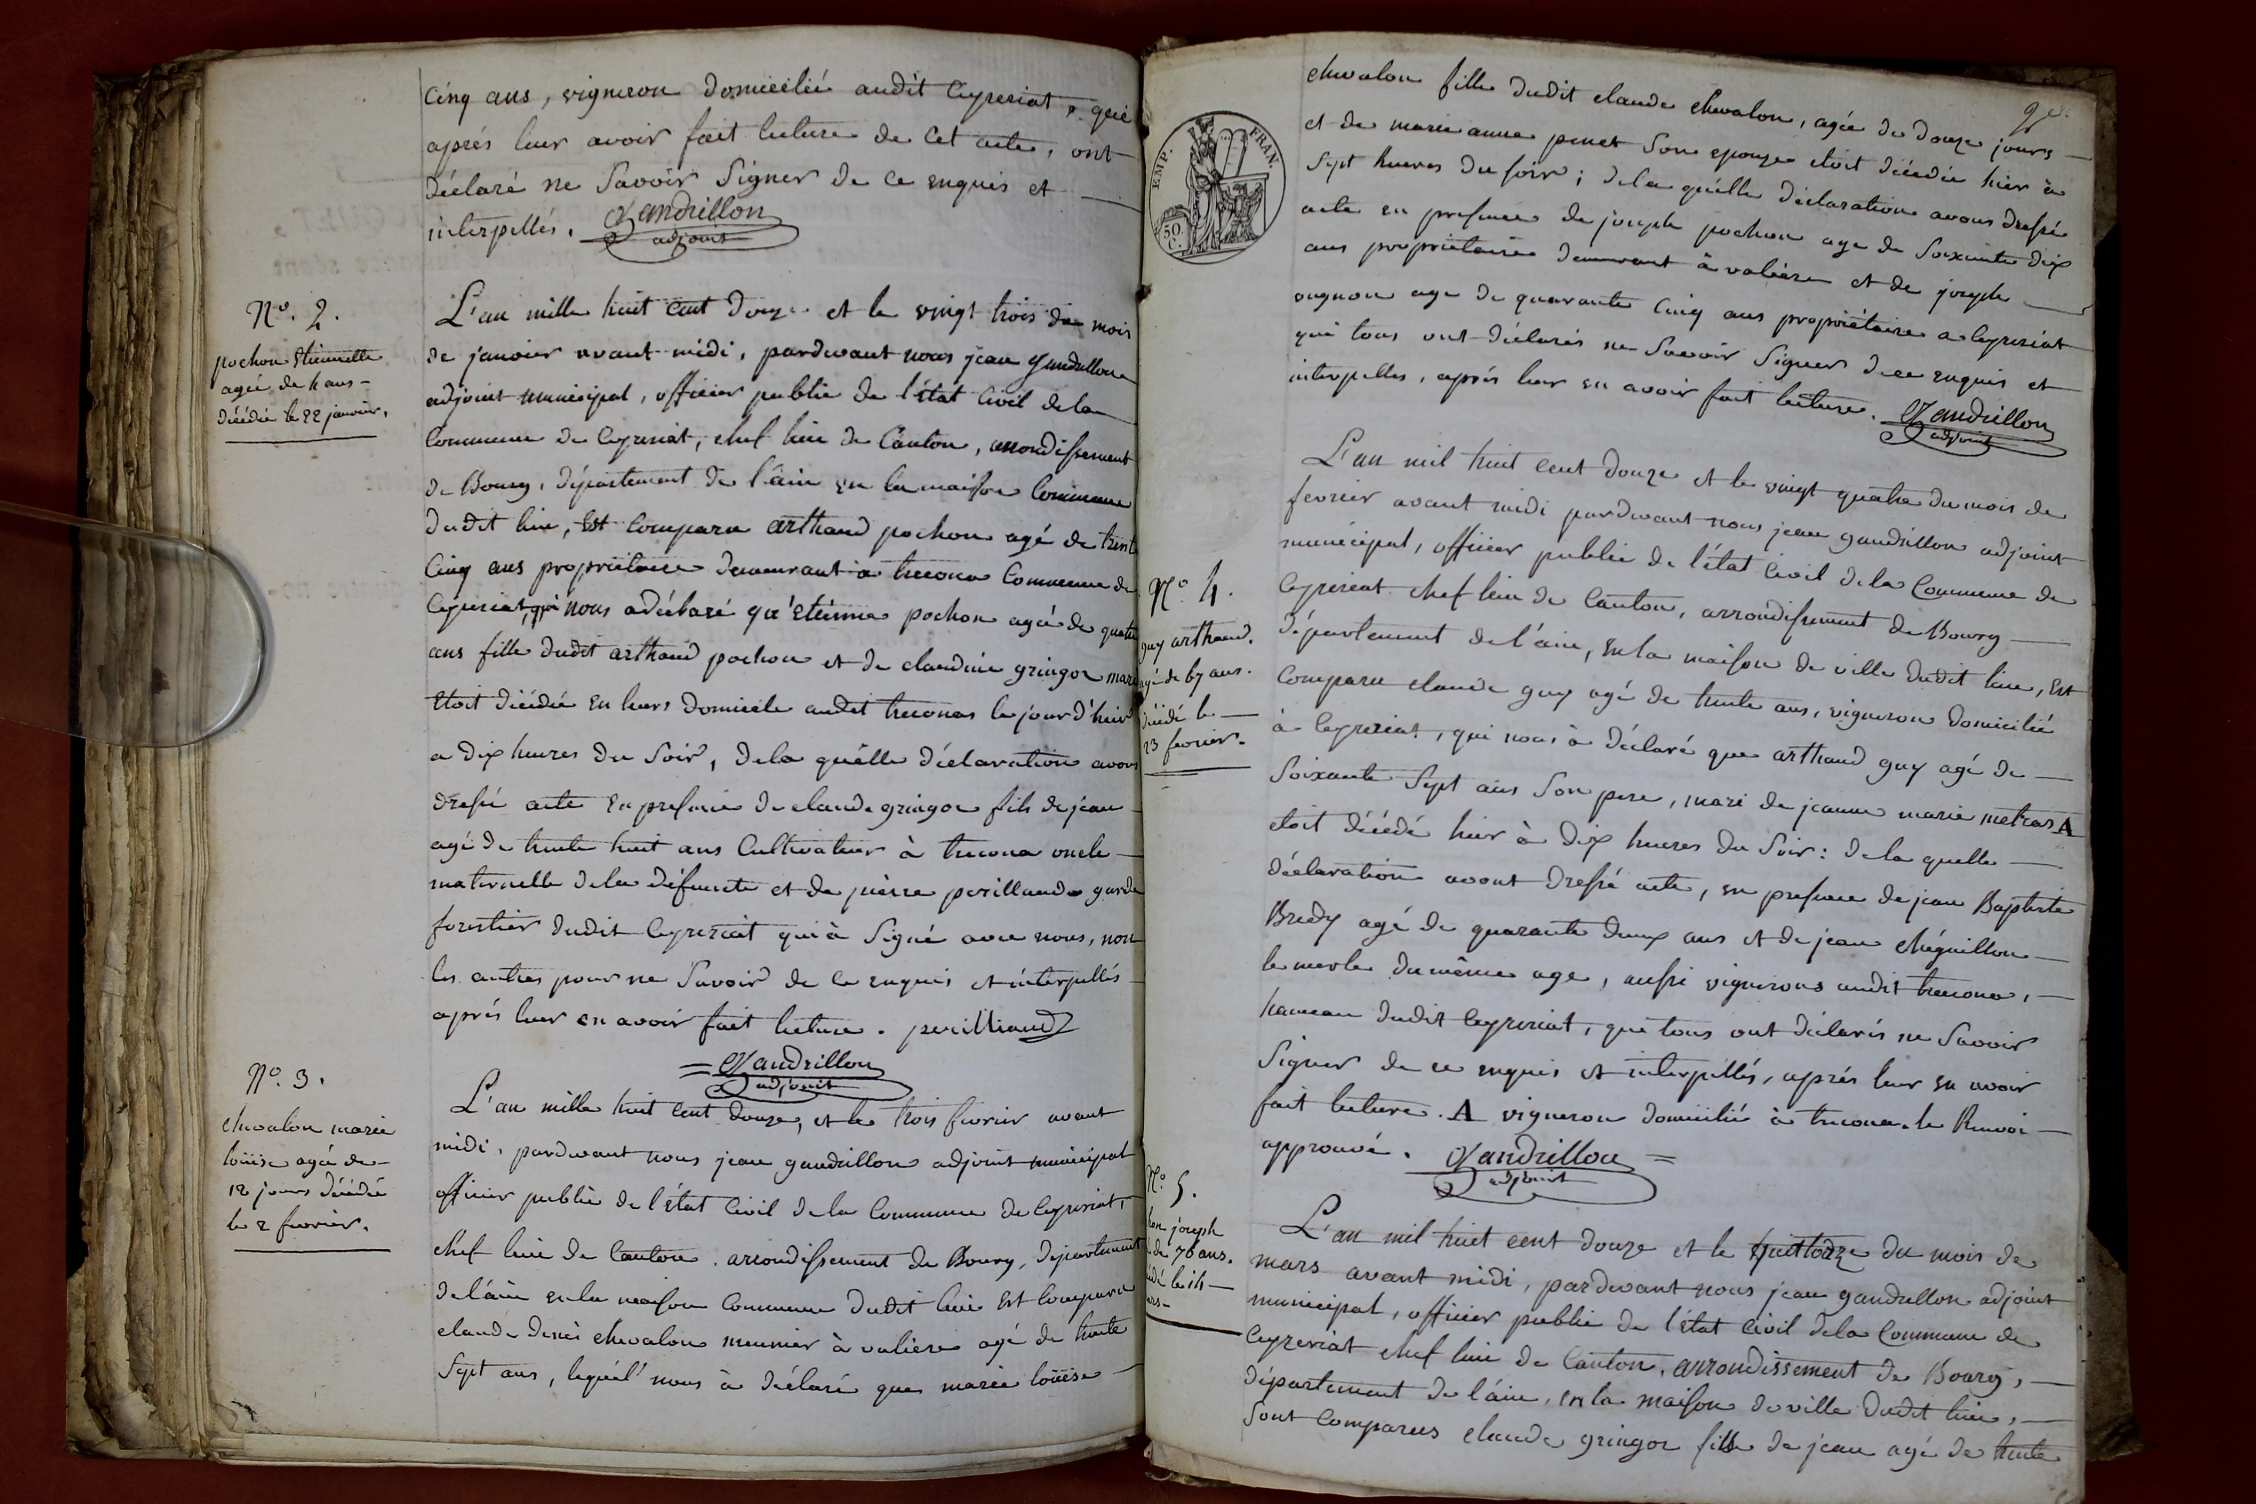 cinq ans, vigneron domicilié audit Ceyzeriat, qui
après leur avoir fait lecture de cet acte, ont
déclaré ne savoir signer de ce enquis et
interpellés. Gandrillon
adjoint
No. 2.
pochon Etiennette
agée de 4 ans
décédée le 22 janvier.
L'an mille huit cent douze et le vingt trois du mois
de janvier avant midi, pardevant nous jean gandrillon
adjoint municipal, officier public de l'état civil de la
commune de Ceyzeriat, chef lieu de Canton, arrondissement
de Bourg, département de l'ain en la maison Commune
dudit lieu, Est comparu arthaud pochon agé de trente
Cinq ans propriétaire demeurant à treconas Commune de
Ceyzeriat, qui nous a déclaré qu'Etienne pochon agée de quatre
ans fille dudit arthaud pochon et de claudine gringoz
etoit décédée en leurs domicile audit treconas le jour d'hier
a dix heures du soir, de la quélle déclaration avons
dressé acte en presence de claude gringoz fils de jean
agé de trente huit ans Cultivateur à trecona oncle
maternelle de la défuncte et de pièrre perilliand garde
forestier dudit Ceyzeriat qui à signé avec nous, non
les autres pour ne savoir de ce enquis et intérpellés
aprés leur en avoir fait lecture. perilliand
= Gandrillon
adjoint
No. 3.
chevalon marie
loüise agée de
12 jours décédée
le 2 fevrier.
L'an mille huit cent douze, et le trois fevrier avant
midi, pardevant nous jean gandrillon adjoint municipal
officier public de l'état civil de la Commune de Ceyzeriat,
chef lieu de Canton, arrondissement de Bourg, département
de l'ain en la maison commune dudit lieu Est comparu
claude denis chevalon meunier à valiere agé de trente
sept ans, lequél nous à déclaré que marie loüise
2e.
EMP. FRAN.
50 C.
chevalon fille dudit claude chevalon, agée de douze jours
et de marie anne penet son epouze etoit décédée hier à
sept heures du soir; de la quélle déclaration avons dressé
acte en presence de joseph pochon age de soixante dix
ans propriétaire demeurant à valiere et de joseph
ougnon age de quarante cinq ans propriétaire a Ceyzeriat
qui tous ont déclarés ne savoir signer de ce enquis et
interpelles, aprés leur en avoir fait lecture. Gandrillon
adjoint
No. 4.
guy arthaud.
agé de 67 ans.
décédé le
23 fevrier.
L'an mil huit cent douze et le vingt quatre du mois de
fevrier avant midi pardevant nous jean gandrillon adjoint
municipal, officier public de l'état civil de la Commune de
Ceyzeriat chef lieu de Canton, arrondissement de Bourg
département de l'ain, en la maison de ville dudit lieu, Est
comparu claude guy agé de trente ans, vigneron domicilié
à Ceyzeriat, qui nous à déclaré que arthaud guy agé de
soixante sept ans son pere, mari de jeanne marie metras A
etoit décédé hier à dix heures du soir: de la quelle
déclaration avont dressé acte, en presence de jean Baptiste
Bredy agé de quarante deux ans et de jean chéguillon
le merle du même age, aussi vignerons audit trecona,
hameau dudit Ceyzeriat, qui tous ont déclarés ne savoir
signer de ce enquis et interpellés, aprés leur en avoir
fait lecture. A vigneron domicilié à trecona. le Renvoi
approuvé. Gandrillon =
adjoint
No. 5.
joseph
de 76 ans.
le 14
L'an mil huit cent douze et le du mois de
mars avant midi, pardevant nous jean gandrillon adjoint
municipal, officier public de l'état civil de la Commune de
Ceyzeriat chef lieu de Canton, arrondissement de Bourg,
département de l'ain, en la maison de ville dudit lieu,
sont comparus claude gringoz fils de jean agé de trente